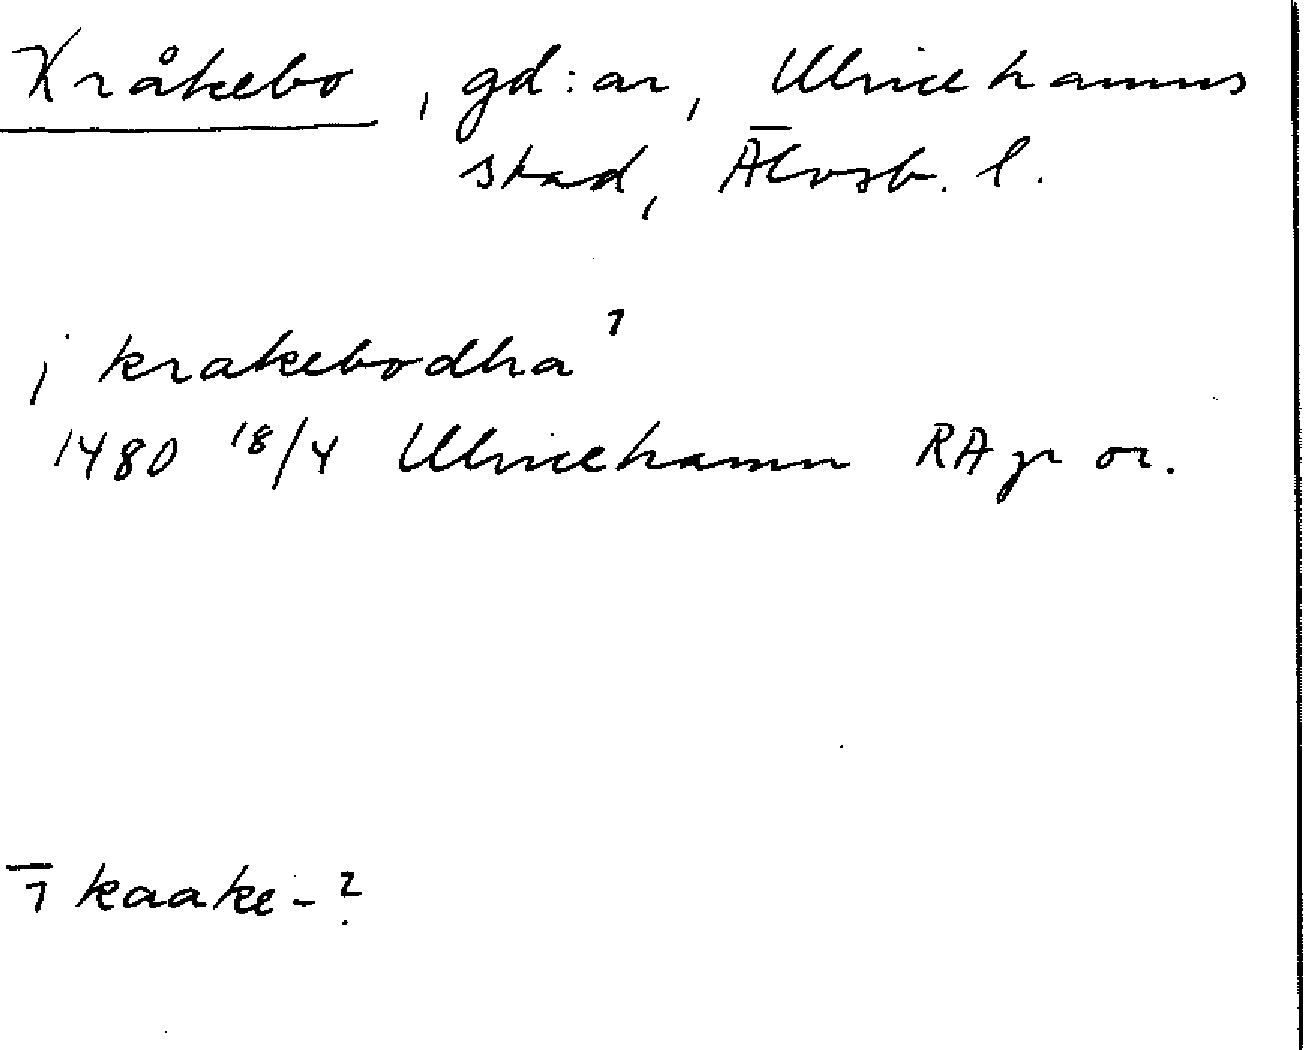 Kråkebo, gd:ar, Ulricehamns
stad, Älvsb. l.
j krakebodha 1
1480 18/4 Ulricehamn RA pr or.
1 kaake-?